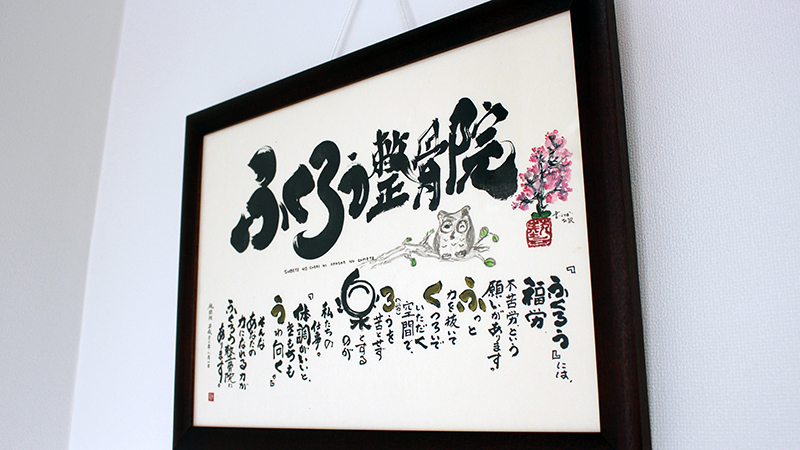 ふくろう整骨院
SUBETE NO CHIRI NI KANSHA WO KOMETE
『ふくろう』には、
福労
不苦労という
願いがあります。
ふっと
力を抜いて
くつろいで
いただく
空間で、
ろうを
苦とせず
楽とする
のが
私たちの
仕事。
『体調がいいと、
気もちも
うわ向く。』
そんな
あなたの
力になれる力が
ふくろう整骨院に
あります。